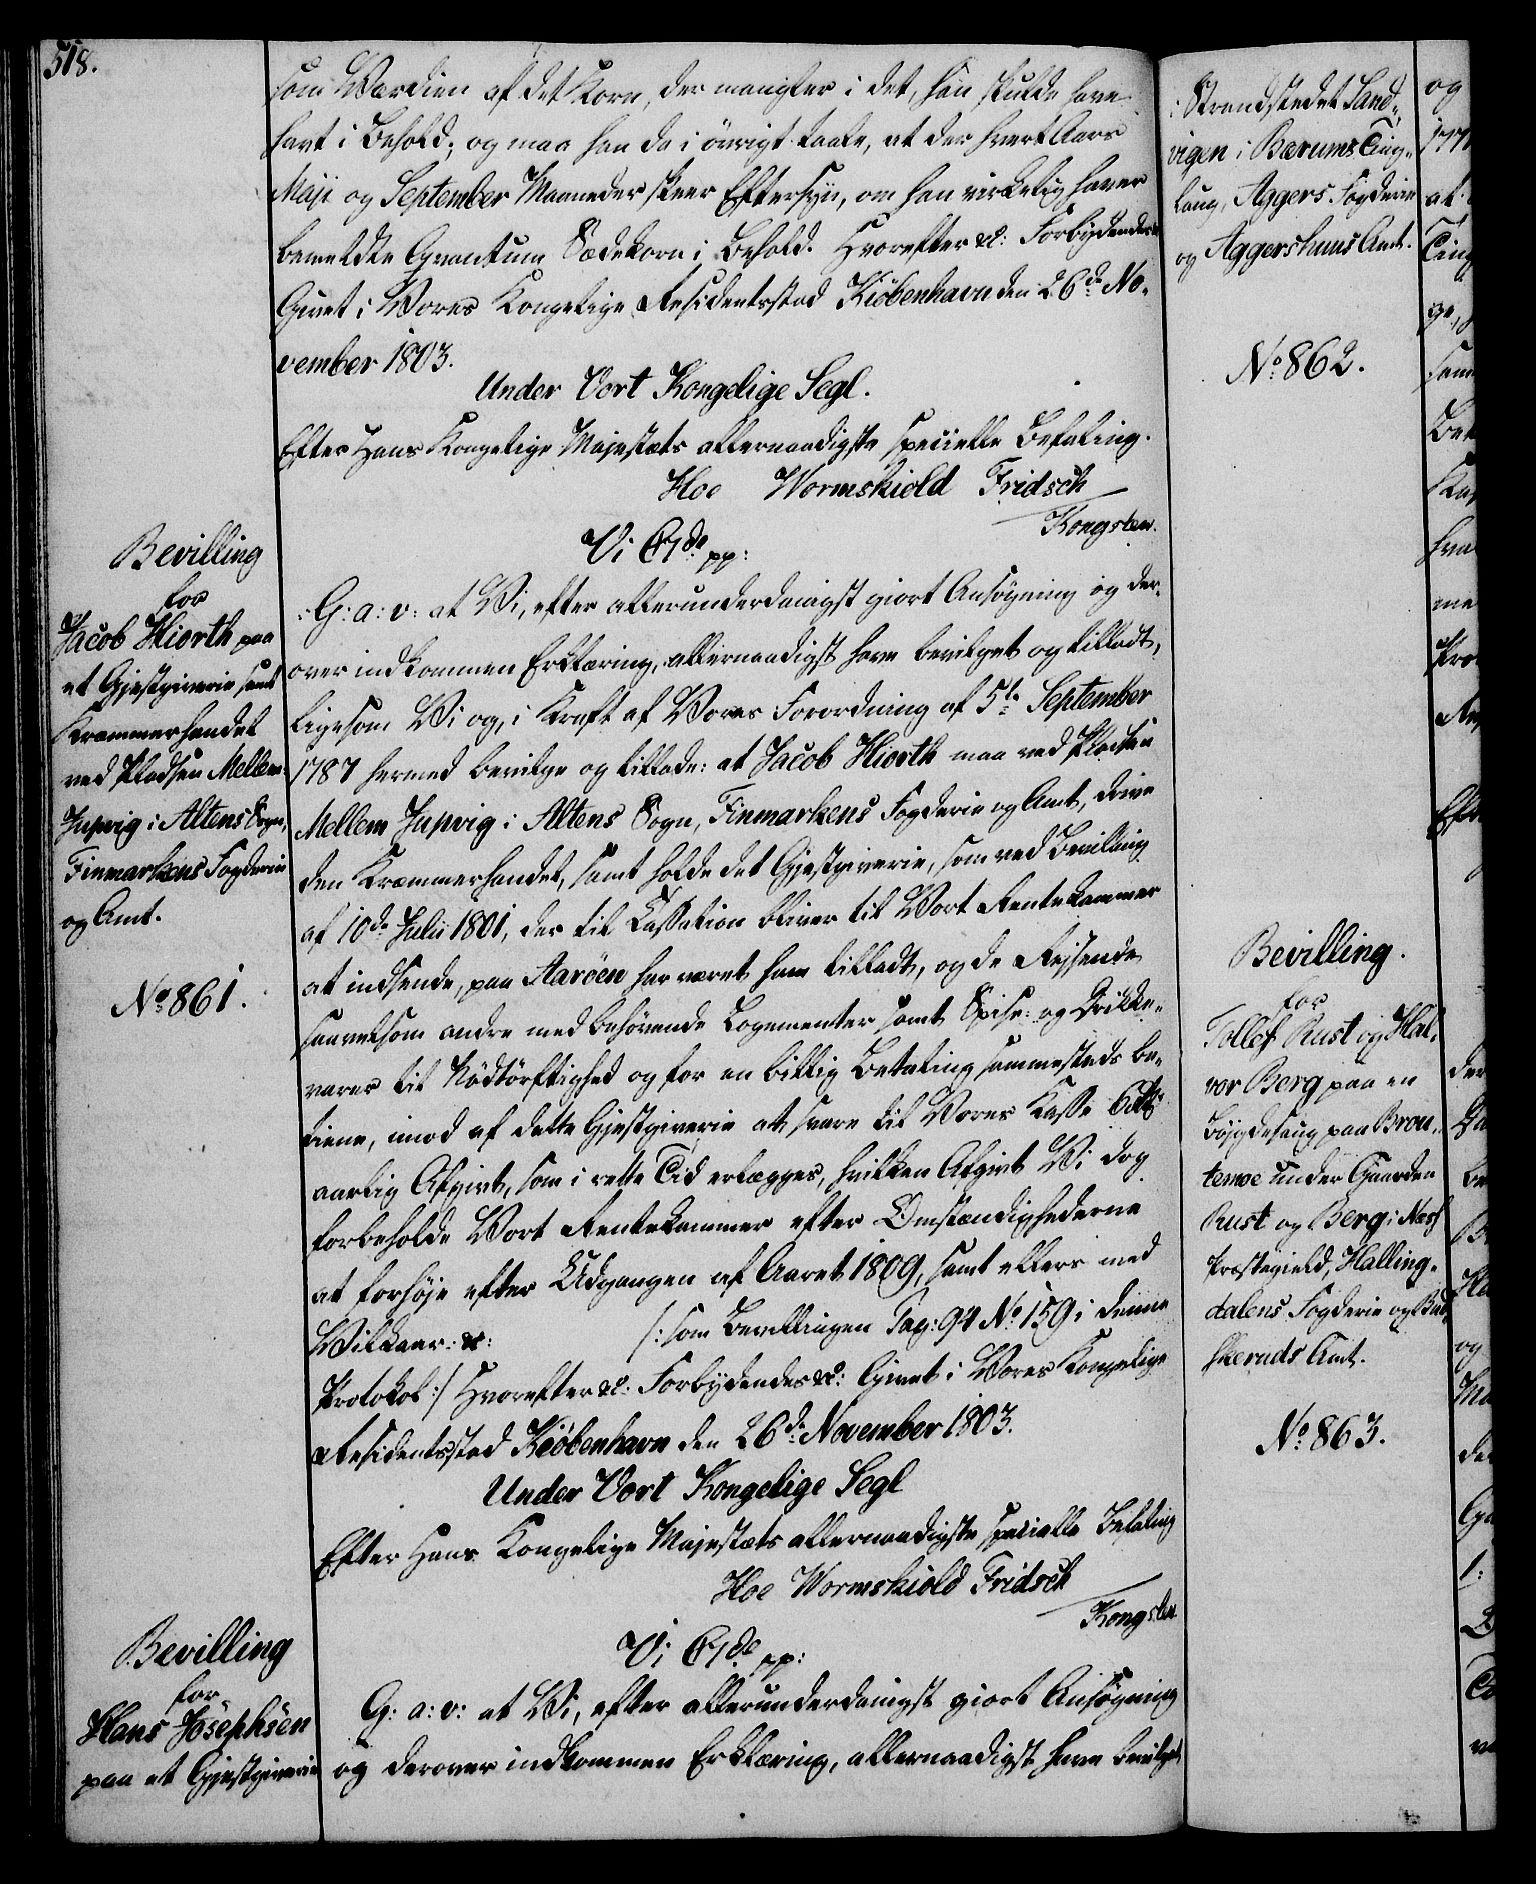 518.
som Værdien af det Korn, der mangler i det, han skulde have
havt i Behold; og maa han da i övrigt taale, at der hvert Aars
Maji og September Maaneder skeer Eftersyn, om han virkelig haver
bemeldte Qvantum Sædekorn i Behold. Hvorefter &c: Forbydendes &c
Givet i Vores Kongelige Residentsstad Kiöbenhavn den 26de No-
vember 1803.
Under Vort Kongelige Segl.
Efter Hans Kongelige Majestæts allernaadigste specielle Befaling.
Hoe Wormskiold Fridsch
Kongsten.
Bevilling
for
Jacob Hiorth paa
et Gjestgiverie samt
Kræmmerhandel
ved Pladsen Mellem
Jupvig i Altens Sogn,
Finmarkens Fogderie
og Amt.
No 861.
Vi C 7de pp:
G: a: v: at Vi, efter allerunderdanigst giort Ansögning og der-
over indkommen Erklæring, allernaadigst have bevilget og tilladt,
ligesom Vi og, i Kraft af Vores Forordning af 5te September
1787 hermed bevilge og tillade: at Jacob Hiorth maa ved Pladsen
Mellem Jupvig i Altens Sogn, Finmarkens Fogderie og Amt, drive
den Kræmmerhandel, samt holde det Gjestgiverie, som ved Bevilling
af 10de Julii 1801, der til Cassation bliver til Vort Rentekammer
at indsende, paa Aaröen har været ham tilladt, og de Reisende
saavelsom andre med behörende Logementer samt Spise- og Drikke-
varer til Nödtörftighed og for en billig Betaling sammesteds be-
tiene, imod af dette Gjestgiverie at svare til Vores Kasse
aarlig Afgivt, som i rette Tid erlægges, hvilken Afgivt Vi dog
forbeholde Vort Rentekammer efter Omstændighederne
at forhöje efter Udgangen af Aaret 1809, samt ellers med
Vilkaar: &c: /: som Bevillingen Pag: 94 No 159 i denne
Protokol :/ Hvorefter &c: Forbydendes &c: Givet i Vores Kongelige
Residentsstad Kiöbenhavn den 26de November 1803.
Under Vort Kongelige Segl
Efter Hans Kongelige Majestæts allernaadigste specielle Befaling
Hoe Wormskiold Fridsch
Kongsten
Bevilling
for
Hans Josephsen
paa et Gjestgiverie
Vi C 7de pp:
G: a: v: at Vi, efter allerunderdanigst giort Ansögning
og derover indkommen Erklæring, allernaadigst have bevilget
i Strandstedet Sand-
vigen i Bærums Ting-
laug, Aggers Fogderie
og Aggershuus Amt.
No 862.
Bevilling.
for
Tollef Rust og Hal-
vor Berg paa en
Böjgdesaug paa Brou-
temoe under Gaarden
Rust og Berg i Næss
Præstegield, Halling-
dalens Fogderie og Bud-
skeruds Amt.
No 863.